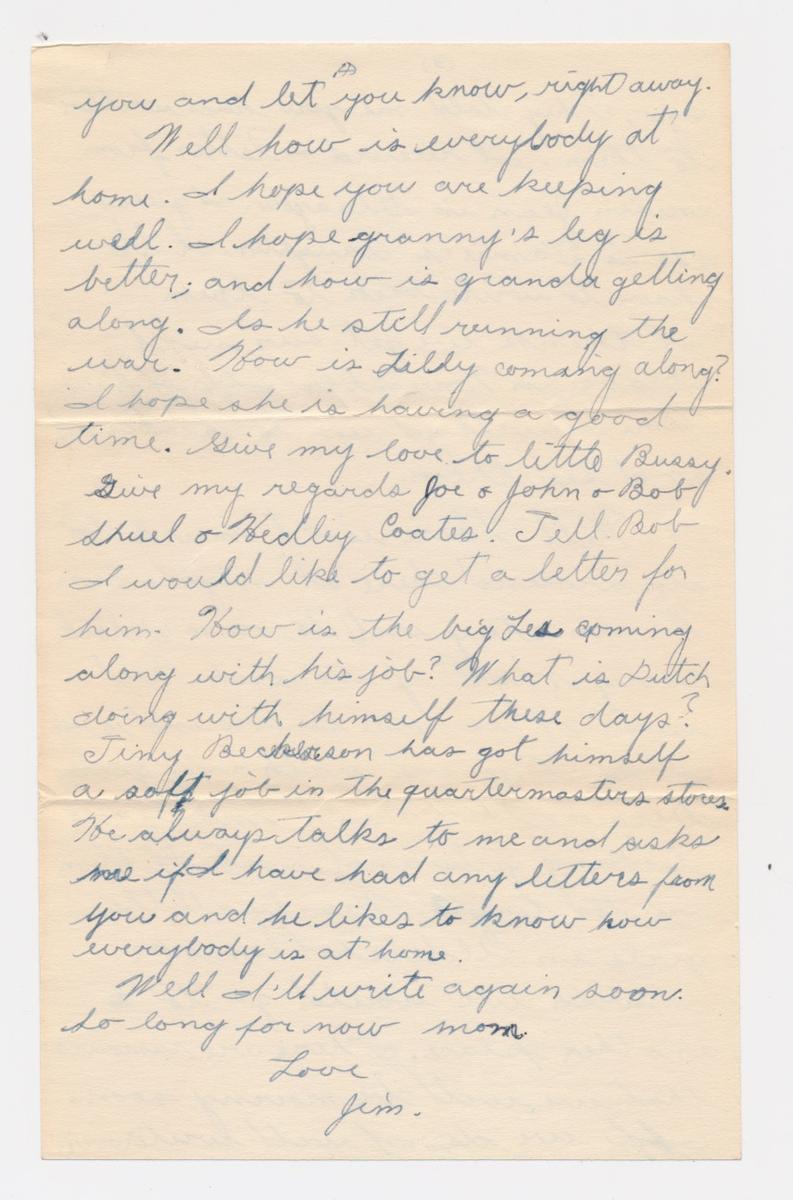 4
you and let you know, right away.
Well how is everybody at
home. I hope you are keeping
well. I hope granny's leg is
better; and how is granda getting
along. Is he still running the
war. How is Lilly coming along?
I hope she is having a good
time. Give my love to little Bussy.
Give my regards Joe & John & Bob
Shuel & Hedley Coates. Tell Bob
I would like to get a letter for
him. How is the big Les coming
along with his job? What is Dutch
doing with himself these days?
Tiny has got himself
a soft job in the quartermasters stores.
He always talks to me and asks
me if I have had any letters from
you and he likes to know how
everybody is at home.
Well I'll write again soon.
So long for now mom.
Love
Jim.